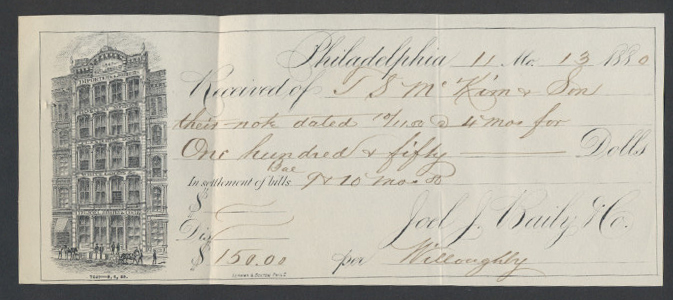 Philadelphia 11 Mo. 13 1880
Received of T S Mc Kim & Son
their note dated 10/11/80 @ 4 mos for
One hundred & fifty Dolls
Bal
In settlement of bills 9 & 10 mos 80
$
Dis
$ 150.00
Joel J. Baily & Co.
per Willoughby